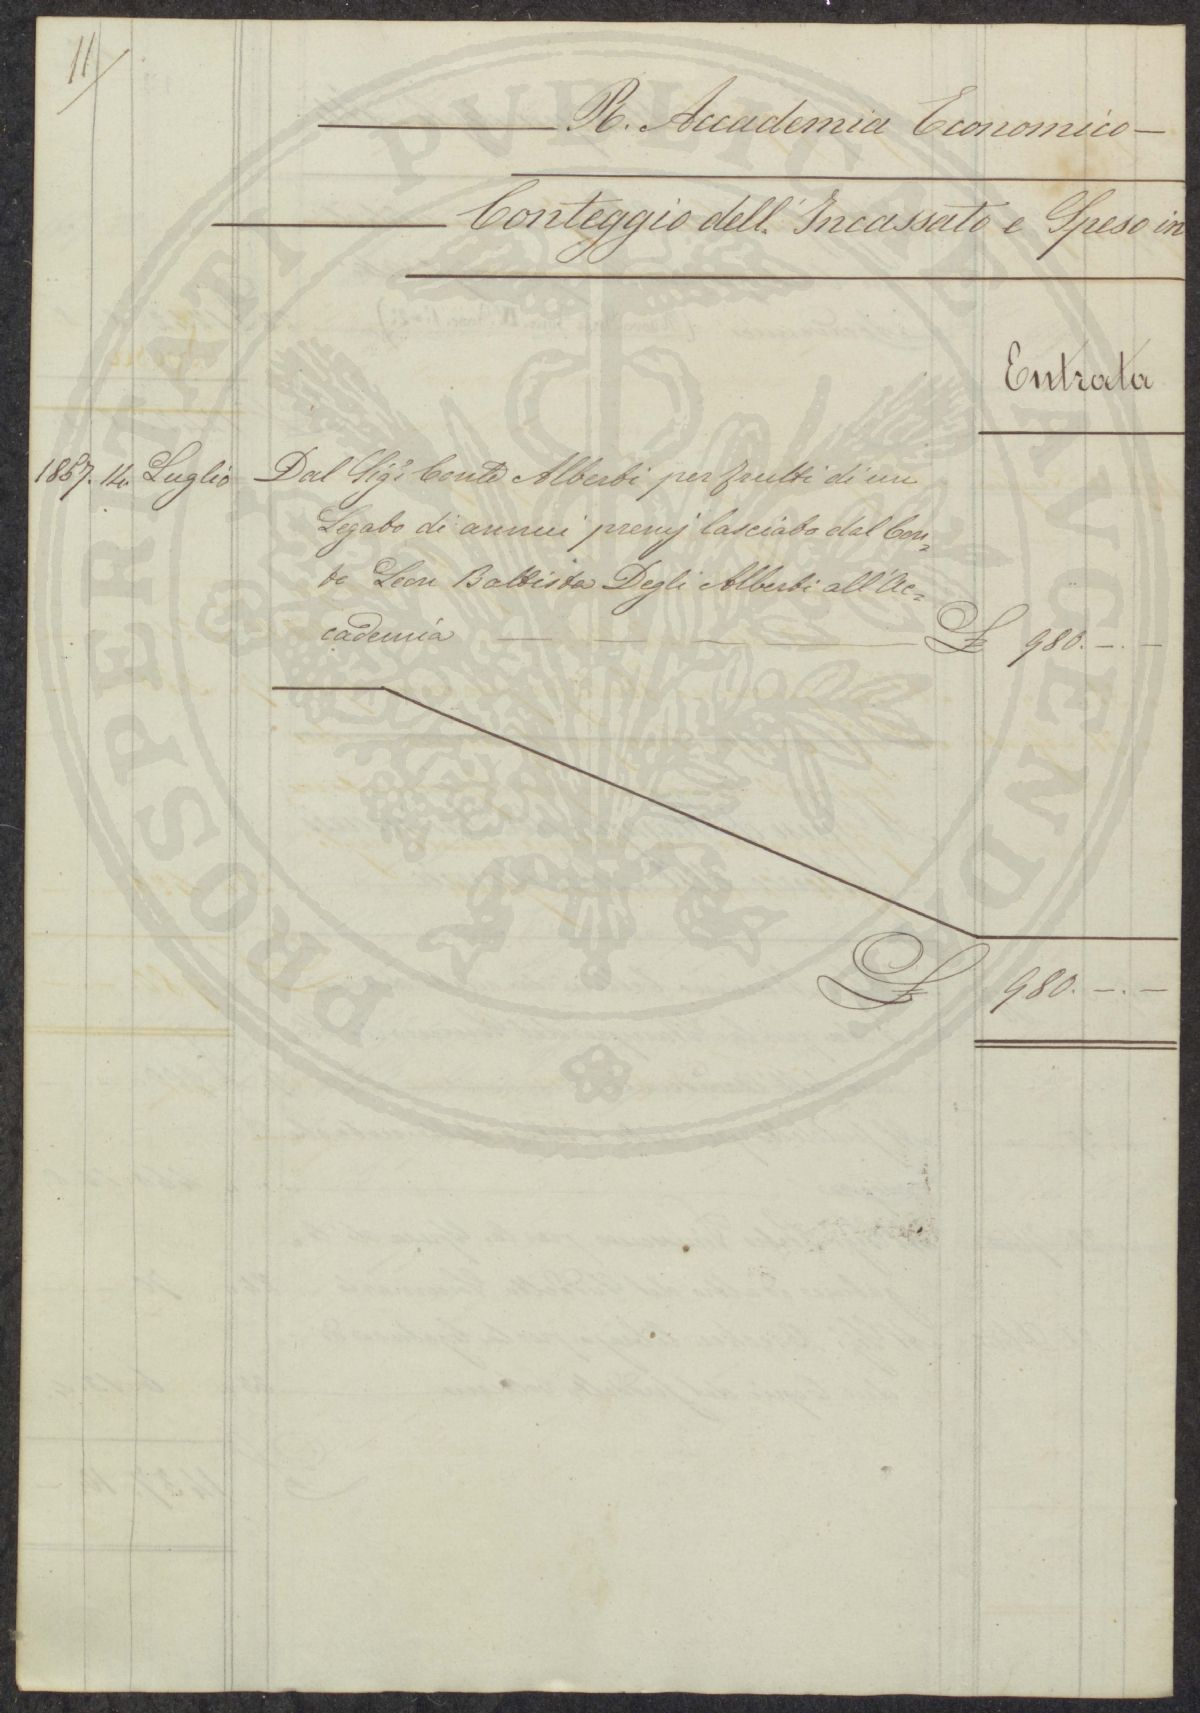 11
R. Accademia Economico-
Conteggio dell'Incassato e Speso in
Entrata
1857. 14. Luglio Dal Sigr. Conte Alberti per frutti di un
Legato di annui premj lasciato dal Con=
te Leon Battista Degli Alberti all'Ac=
cademia £ 980. -. -
£ 980. -. -
PROSPERITATI PVBLICAE AVGENDAE